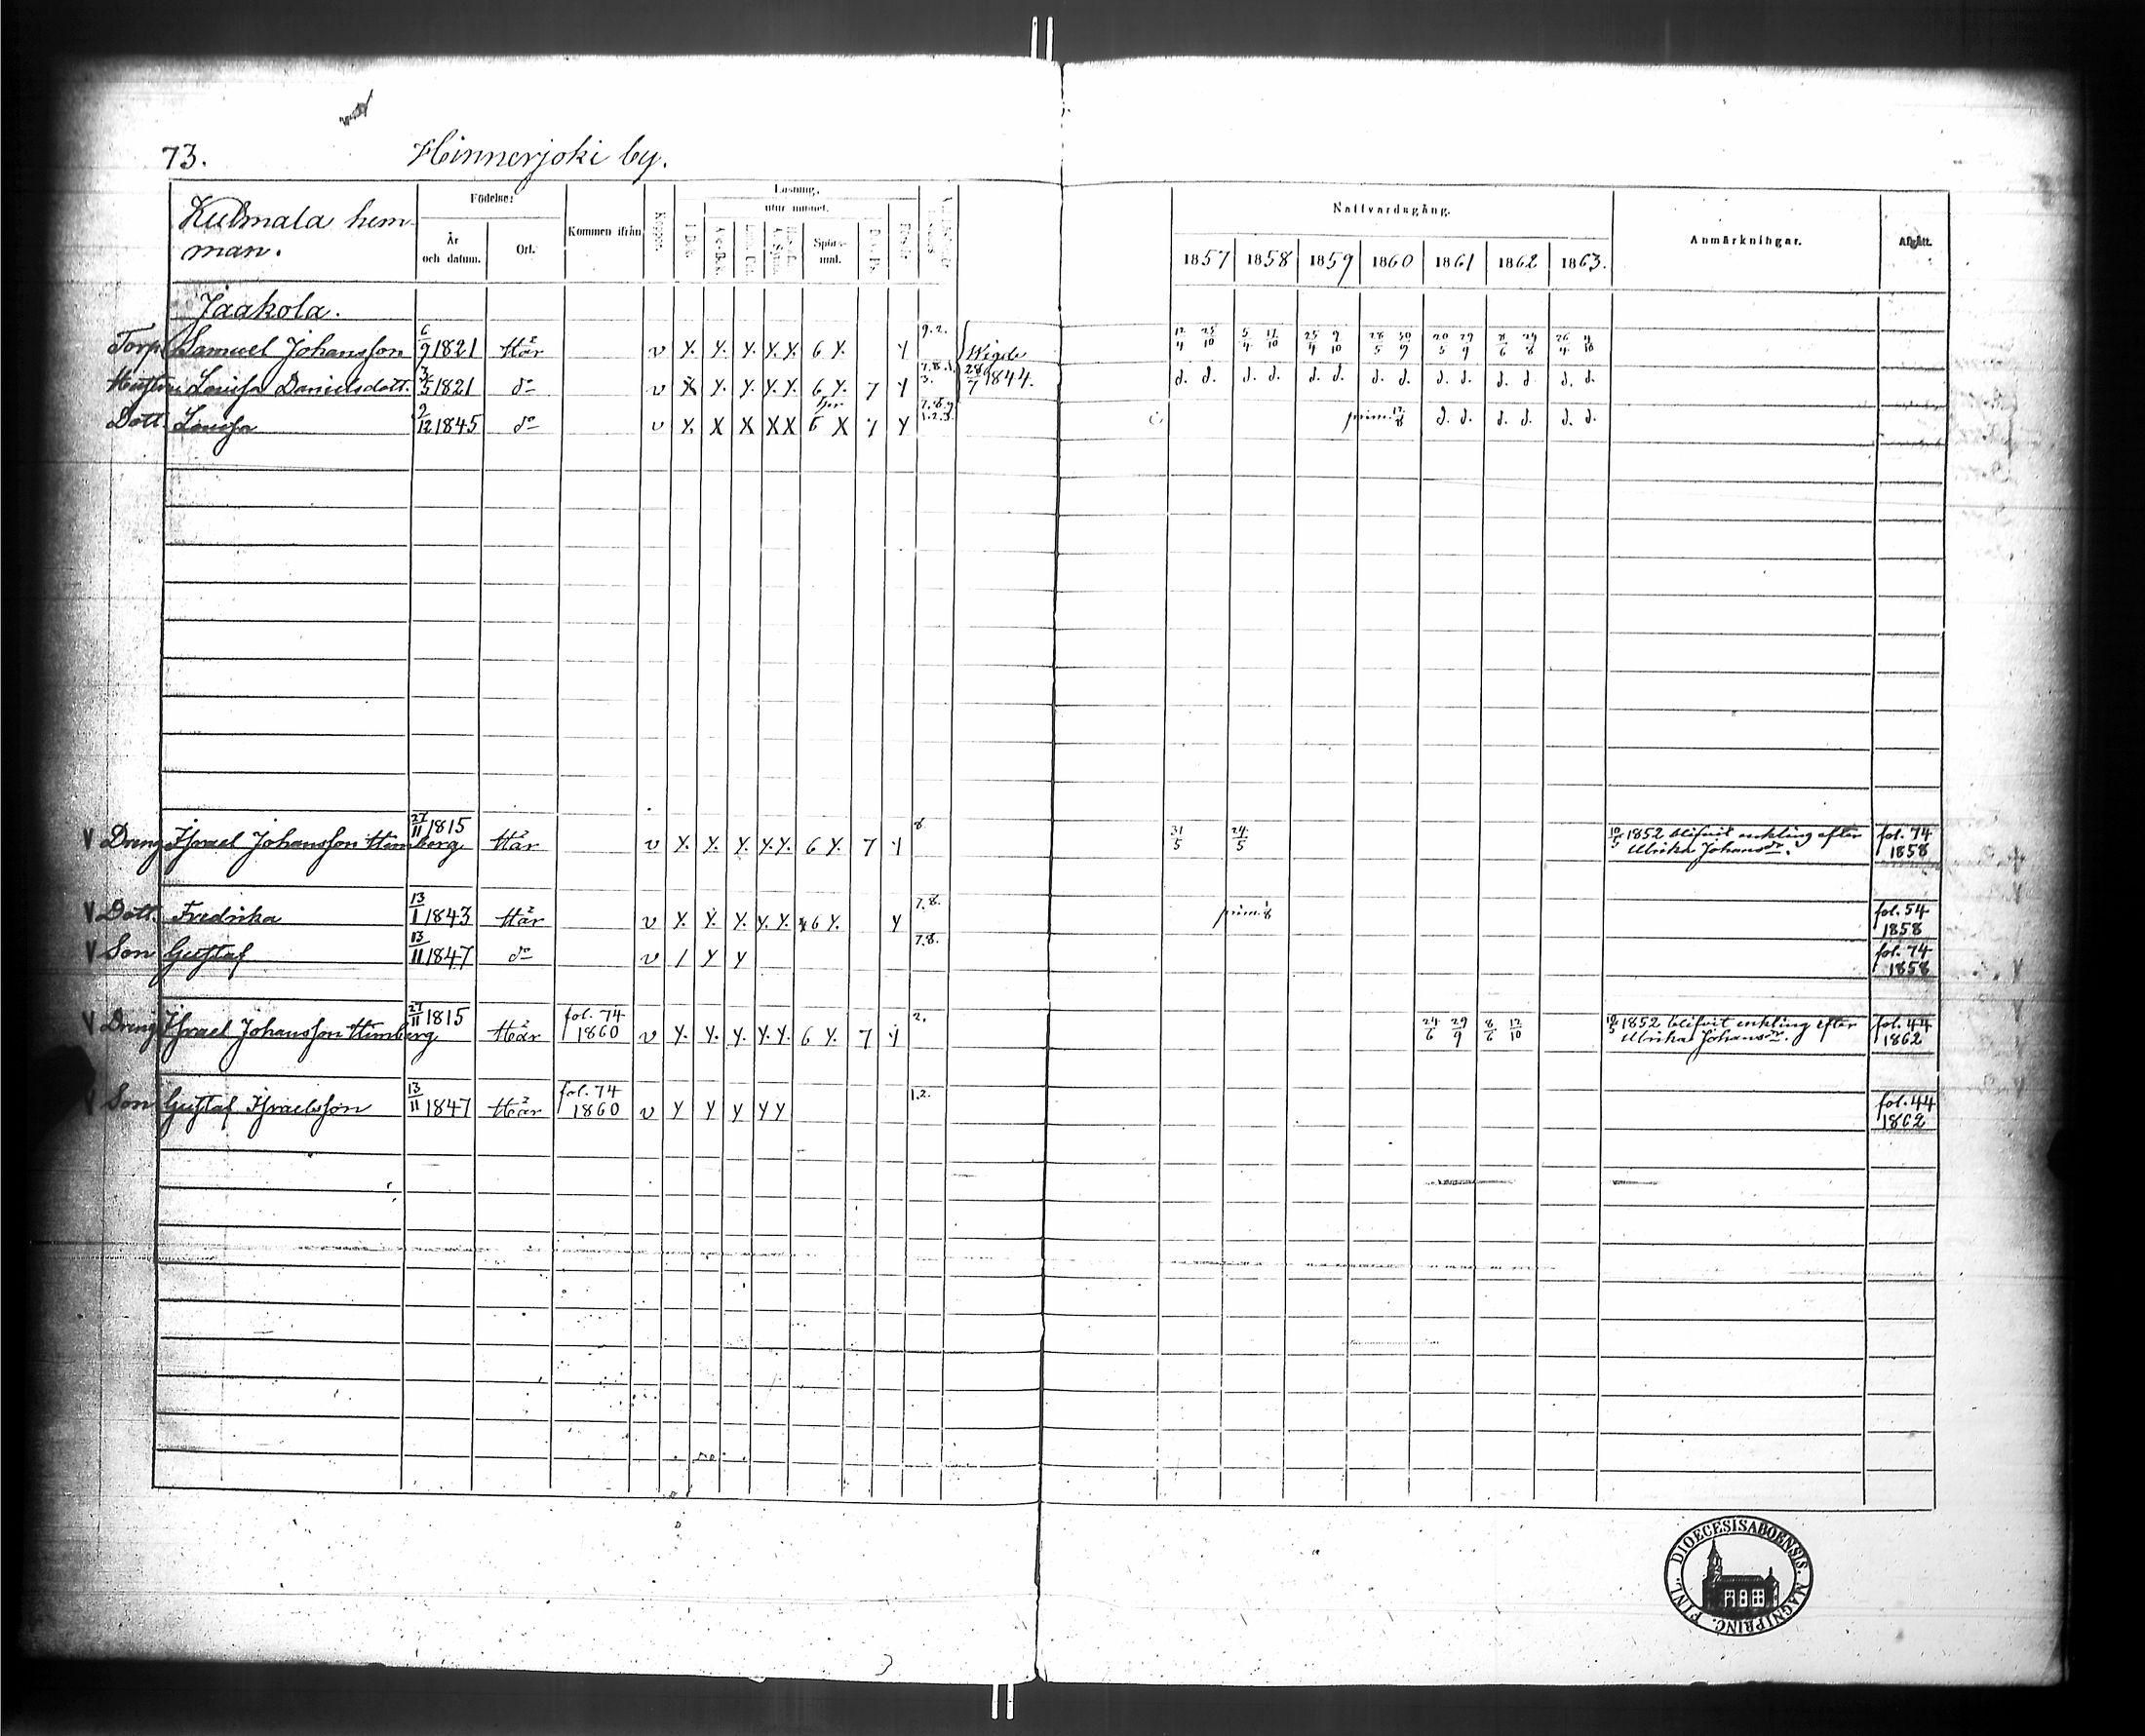 73. Hinnerjoki by.
Kulmala hem-
man.
Födelse:
År
och datum.
Ort.
Kommen ifrån
Koppor.
Läsning.
utur minnet.
Spörs-
mål.
Nattvardsgång.
1857 1858 1859 1860 1861 1862 1863.
Anmärkningar.
Afgått.
Jaakola.
Torp. Samuel Johansson 6/9 1821 Här v y. y. y. y. y. 6 y. y 9.2. Wigde 12/4 5/4 25/4 9/10 28/5 30/9 29/9 8/6 26/4
Hustru Lovisa Danielsdott. 3/5 1821 do v x y. y. y. y. 6 y. 7 y 28/7 1844. d. d. d. d. d. d. d. d. d. d. d. d. d. d.
Dott. Lovisa 9/12 1845 do v y. x x x x 6 x 7 y prim. d. d. d. d. d. d.
v Dreng Israel Johansson Himberg 27/11 1815 Här v y. y. y. y. y. 6 y. 7 y 8 31/5 24/5 10/5 1852 blifvit enkling efter fol. 74
Ulrika Johansdr. 1858
v Dott. Fredrika 13/1 1843 Här v y. y. y. y. y. 6 y. y 7.8. prim. fol. 54
1858
v Son Gustaf 13/11 1847 do v / y y 7.8. fol. 74
1858
v Dreng Israel Johansson Himberg 27/11 1815 Här fol. 74 1860 v y. y. y. y. y. 6 y. 7 y 2. 24/6 29/9 8/6 12/10 10/5 1852 blifvit enkling efter fol. 44
Ulrika Johansdr. 1862
v Son Gustaf Israelsson 13/11 1847 Här fol. 74 1860 v y y y y y 1.2. fol. 44
1862
DIOECESIS ABOENSIS. MAGNI PRINC. FINL.